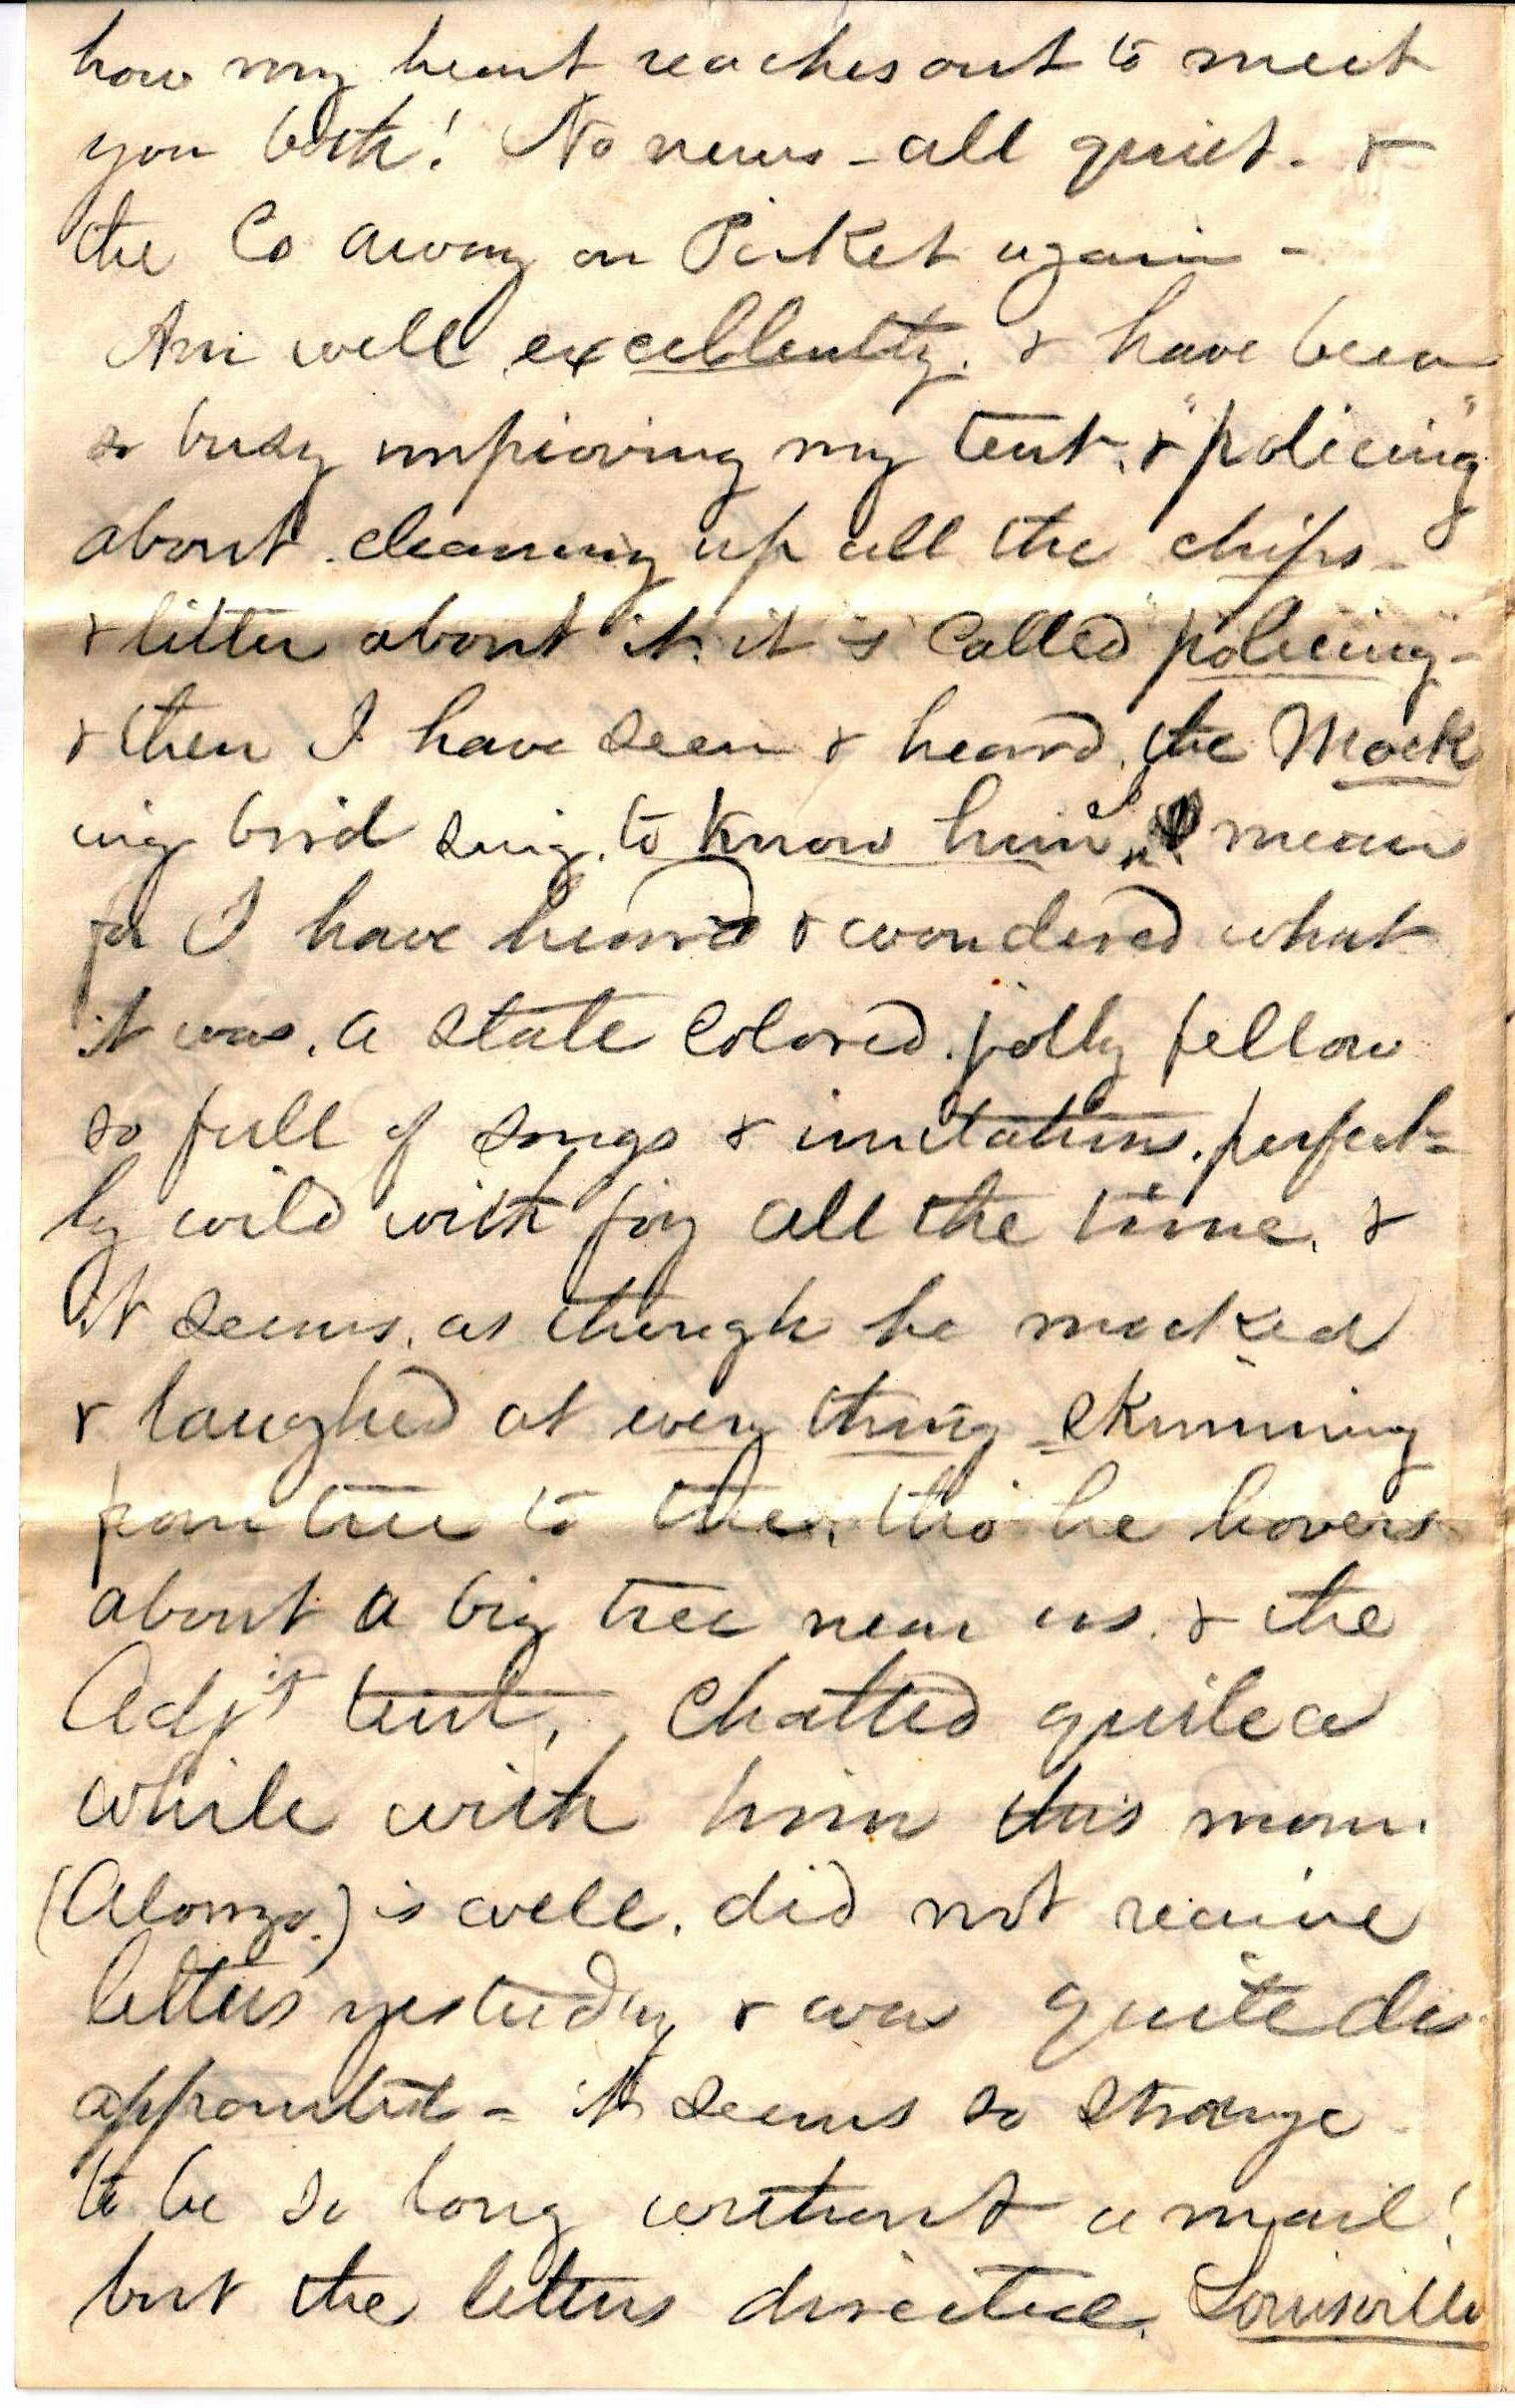 how my heart reaches out to meet
you both! No news - all quiet. &
the Co away on Picket again -
Am well excellently. & have been
so busy improving my tent. & "policing"
about. cleaning up all the chips -
& litter about it. it is Called "policing" -
& then I have seen & heard. the Mock
ing bird sing. to know him, I mean
for I have heard & wondered what
it was. a slate Colored. jolly fellow
so full of songs & imitations. perfect-
ly wild with joy all the time. &
it seems. as though he mocked
& laughed at every thing skimming
from tree to tree. tho' he hovers
about a big tree near us. & the
Adjt tent, Chatted quite a
while with him this morn.
(Alonzo.) is well. did not receive
letters yesterday & was quite dis
appointed - it seems so strange
to be so long without a mail!
but the letters directed. Louisville